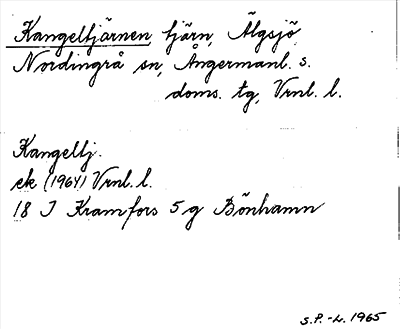 Kangeltjärnen, tjärn, Älgsjö
Nordingrå sn, Ångermanl. s.
doms. tg, Vrnl. l.
Kangeltj.
ek (1964) Vrnl. l.
18 J Kramfors 5 g Bönhamn
S.P.-L. 1965